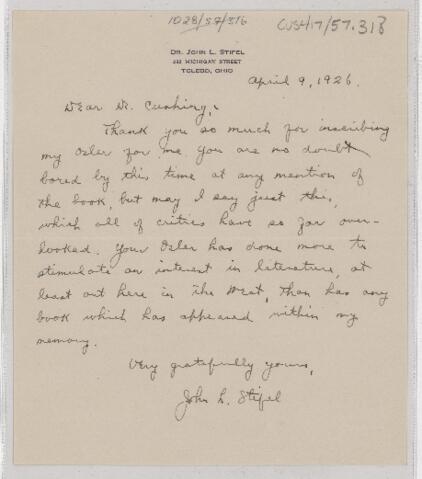 1028/57/316
CUS417/57.318
DR. JOHN L. STIFEL
MICHIGAN STREET
TOLEDO, OHIO
April 9, 1926.
Dear Dr. Cushing,:
Thank you so much for inscribing
my Osler for me. You are no doubt
bored by this time at any mention of
the book, but may I say just this,
which all of critics have so far over-
looked. Your Osler has done more to
stimulate an interest in literature, at
least out here in the West, than has any
book which has appeared within my
memory.
Very gratefully yours,
John L. Stifel